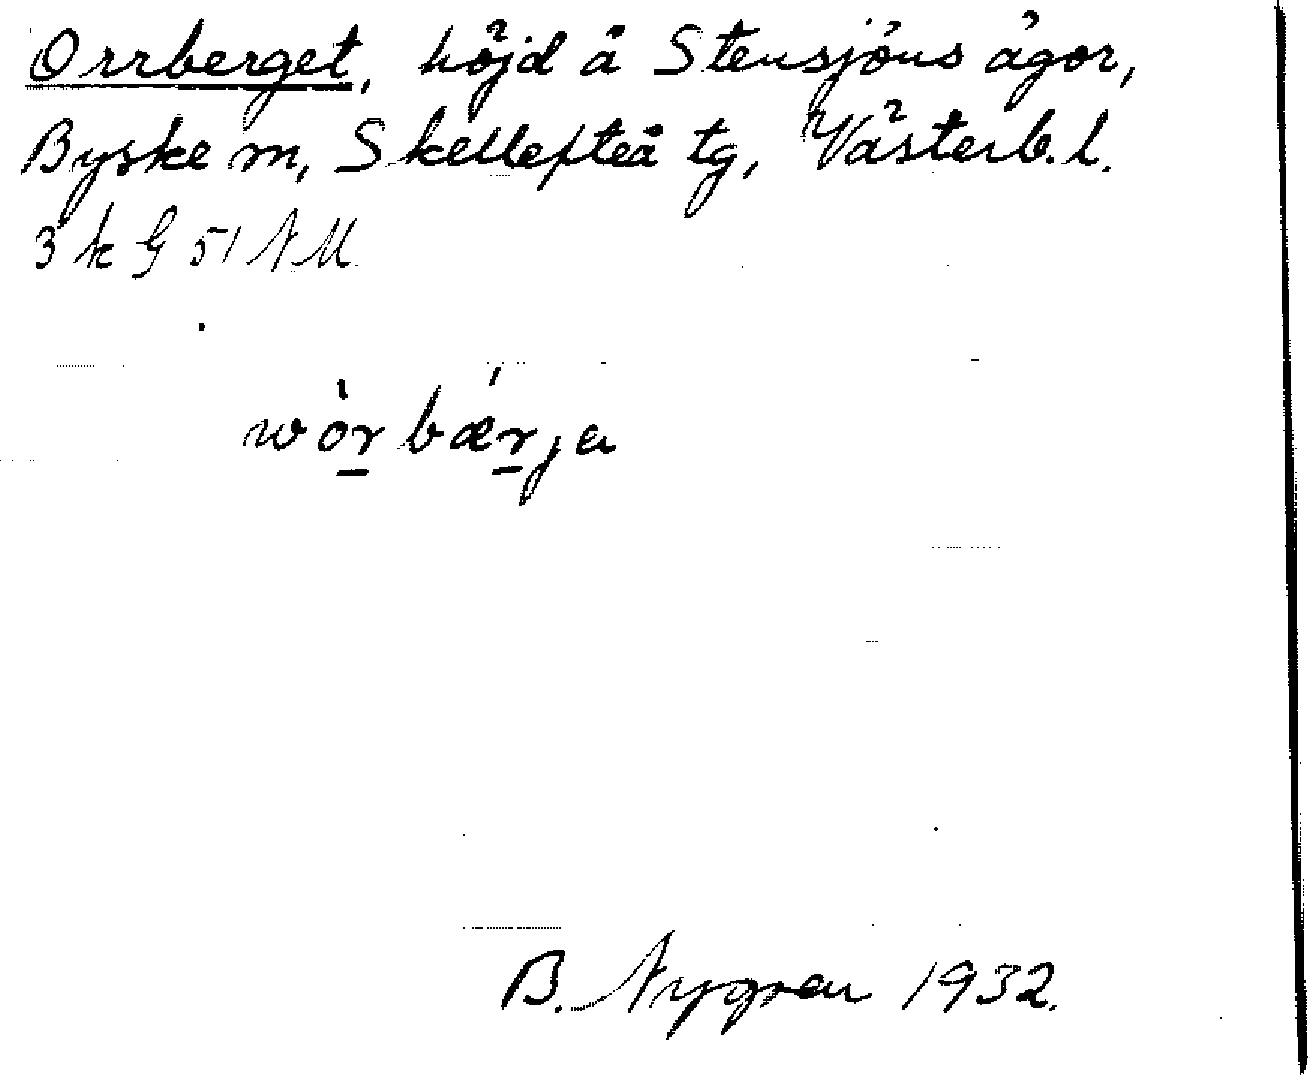 Orrberget, höjd å Stensjöns ägor,
Byske m, Skellefteå tg, Västerb. l.
3 k G 51 NM
wòr̲bǽr̲ja
B. Nygren 1932.